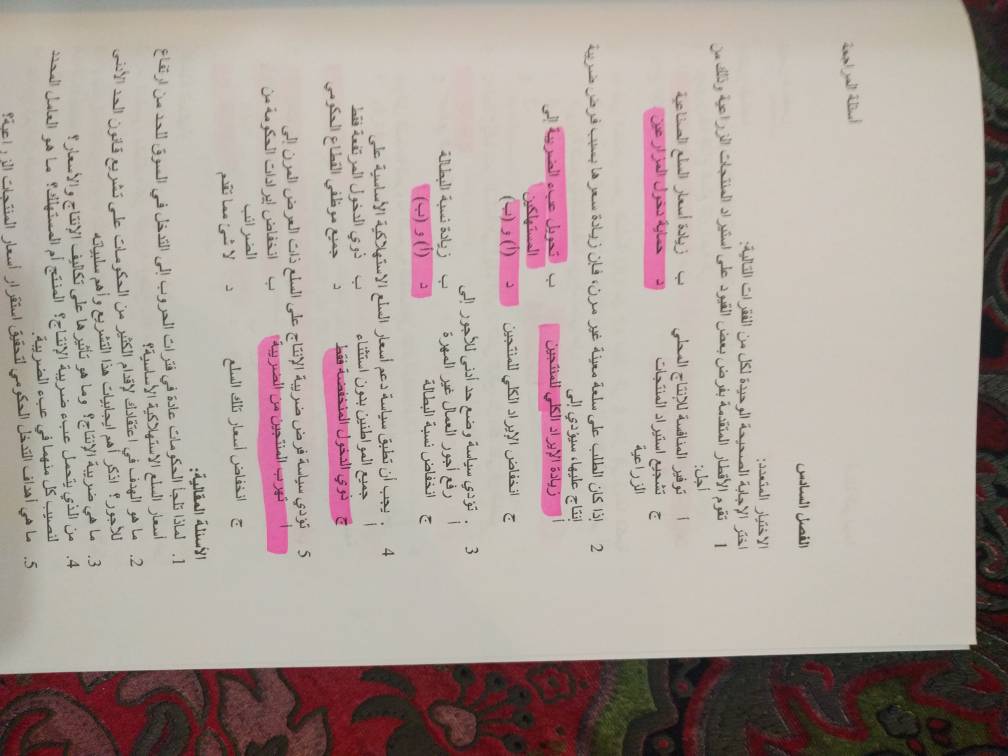 أسئلة المراجعة
الفصل السادس
الاختيار المتعدد:
اختر الإجابة الصحيحة الوحيدة لكل من الفقرات التالية:
1 تقوم الأقطار المتقدمة بفرض بعض القيود على استيراد المنتجات الزراعية وذلك من
أجل:
أ توفير المنافسة للإنتاج المحلي ب زيادة أسعار السلع الصناعية
ج تشجيع استيراد المنتجات د حماية دخول المزارعين
الزراعية
2 إذا كان الطلب على سلعة معينة غير مرن، فإن زيادة سعرها بسبب فرض ضريبة
إنتاج عليها، سيؤدي إلى
أ زيادة الإيراد الكلي للمنتجين ب تحويل عبء الضريبة إلى
المستهلكين
ج انخفاض الإيراد الكلي للمنتجين د (أ) و (ب)
3 . تؤدي سياسة وضع حد أدنى للأجور إلى
أ رفع أجور العمال غير المهرة ب زيادة نسبة البطالة
ج انخفاض نسبة البطالة د (أ) و (ب)
4 . يجب أن تطبق سياسة دعم أسعار السلع الاستهلاكية الأساسية على
أ جميع المواطنين بدون استثناء ب ذوي الدخول المرتفعة فقط
ج ذوي الدخول المنخفضة فقط د جميع موظفي القطاع الحكومي
5 تؤدي سياسة فرض ضريبة الإنتاج على السلع ذات العرض المرن إلى
أ تهرب المنتجين من الضريبة ب انخفاض إيرادات الحكومة من
الضرائب
ج انخفاض أسعار تلك السلع د لا شئ مما تقدم
الأسئلة المقالية:
1. لماذا تلجأ الحكومات عادة في فترات الحروب إلى التدخل في السوق للحد من ارتفاع
أسعار السلع الاستهلاكية الأساسية؟
2. ما هو الهدف في اعتقادك لإقدام الكثير من الحكومات على تشريع قانون الحد الأدنى
للأجور؟ اذكر أهم إيجابيات هذا التشريع وأهم سلبياته
3. ما هي ضريبة الإنتاج؟ وما هو تأثيرها على تكاليف الإنتاج والأسعار؟
4. من الذي يتحمل عبء ضريبة الإنتاج؟ المنتج أم المستهلك؟ ما هو العامل المحدد
لنصيب كل منهما في عبء الضريبة.
5. ما هي أهداف التدخل الحكومي لتحقيق استقرار أسعار المنتجات الزراعية؟